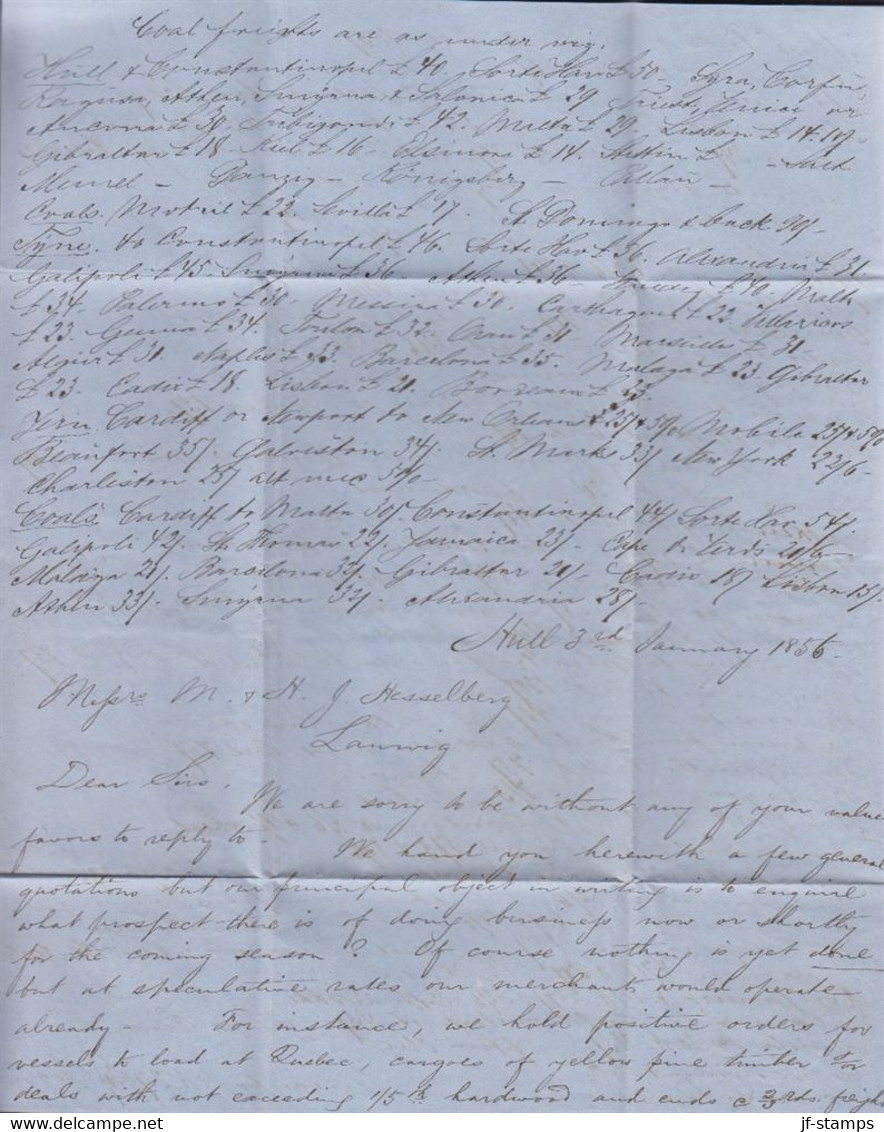 Coal freights are as under viz.
Hull to Constantinopel £ 40. Sorte Hav £ 50 – Syra, Corfu,
Ragusa, Athen, Smyrna, & Salonica £ 29 Triest, Venice or
Ancona £ 39. £ 42. Malta £ 29. Lisbon £ 14.
Gibraltar £ 18. Kiel £ 16 – Elsinore £ 14. Stettin £ –
Memel – Danzig – Königsberg – –
Coals. Motril £ 22. Sevilla £ 17. St Domingo & back 90/-
Tyne. to Constantinopel £ 46. Sorte Hav £ 56. Alexandria £ 31.
Galipoli £ 45. Smyrna £ 36 Athen £ 36 – £ 40. Malta
£ 34. Palermo £ 30. Messina £ 30. Carthagena £ 22.
£ 23. Genua £ 34. Toulon £ 32. Oran £ 31 Marseilles £ 31.
Algier £ 31. Naples £ 33. Barcelona £ 35. Malaga £ 23. Gibraltar
£ 23. Cadix £ 18. Lisbon £ 21. Bordeaux £
Cardiff or Newport to New Orleans 25/ & 5% Mobile 25/ & 5%
Beaufort 35/. Galviston 34/. St. Marks 33/ New York 22/6-
Charliston 25/ alt 5% –
Coals Cardiff to Malta 30/. Constantinopel 44/ Sorte Hav 54/.
Galipoli 42/. St. Thomas 22/. Jamaica 23/- Cape de Verds 21/6
Malaga 21/. Barcelona 33/. Gibraltar 21/- Cadix 18/ Lisbon 15/.
Athen 33/. Smyrna 32/. Alexandria 28/
Hull 3rd January 1856-
Messrs M. & H. J. Hesselberg
Laurwig
Dear Sirs.
We are sorry to be without any of your value
favors to reply to – We hand you herewith a few general
quotations but our principal object in writing is to enquire
what prospect there is of doing business now or shortly
for the coming season? Of course nothing is yet done
but at speculative rates our merchants would operate
already – For instance, we hold positive orders for
vessels to load at Quebec, cargoes of yellow pine timber &/or
deals with not exceeding 1/5th hardwood and ends @ 2/3rds. freight
jf-stamps